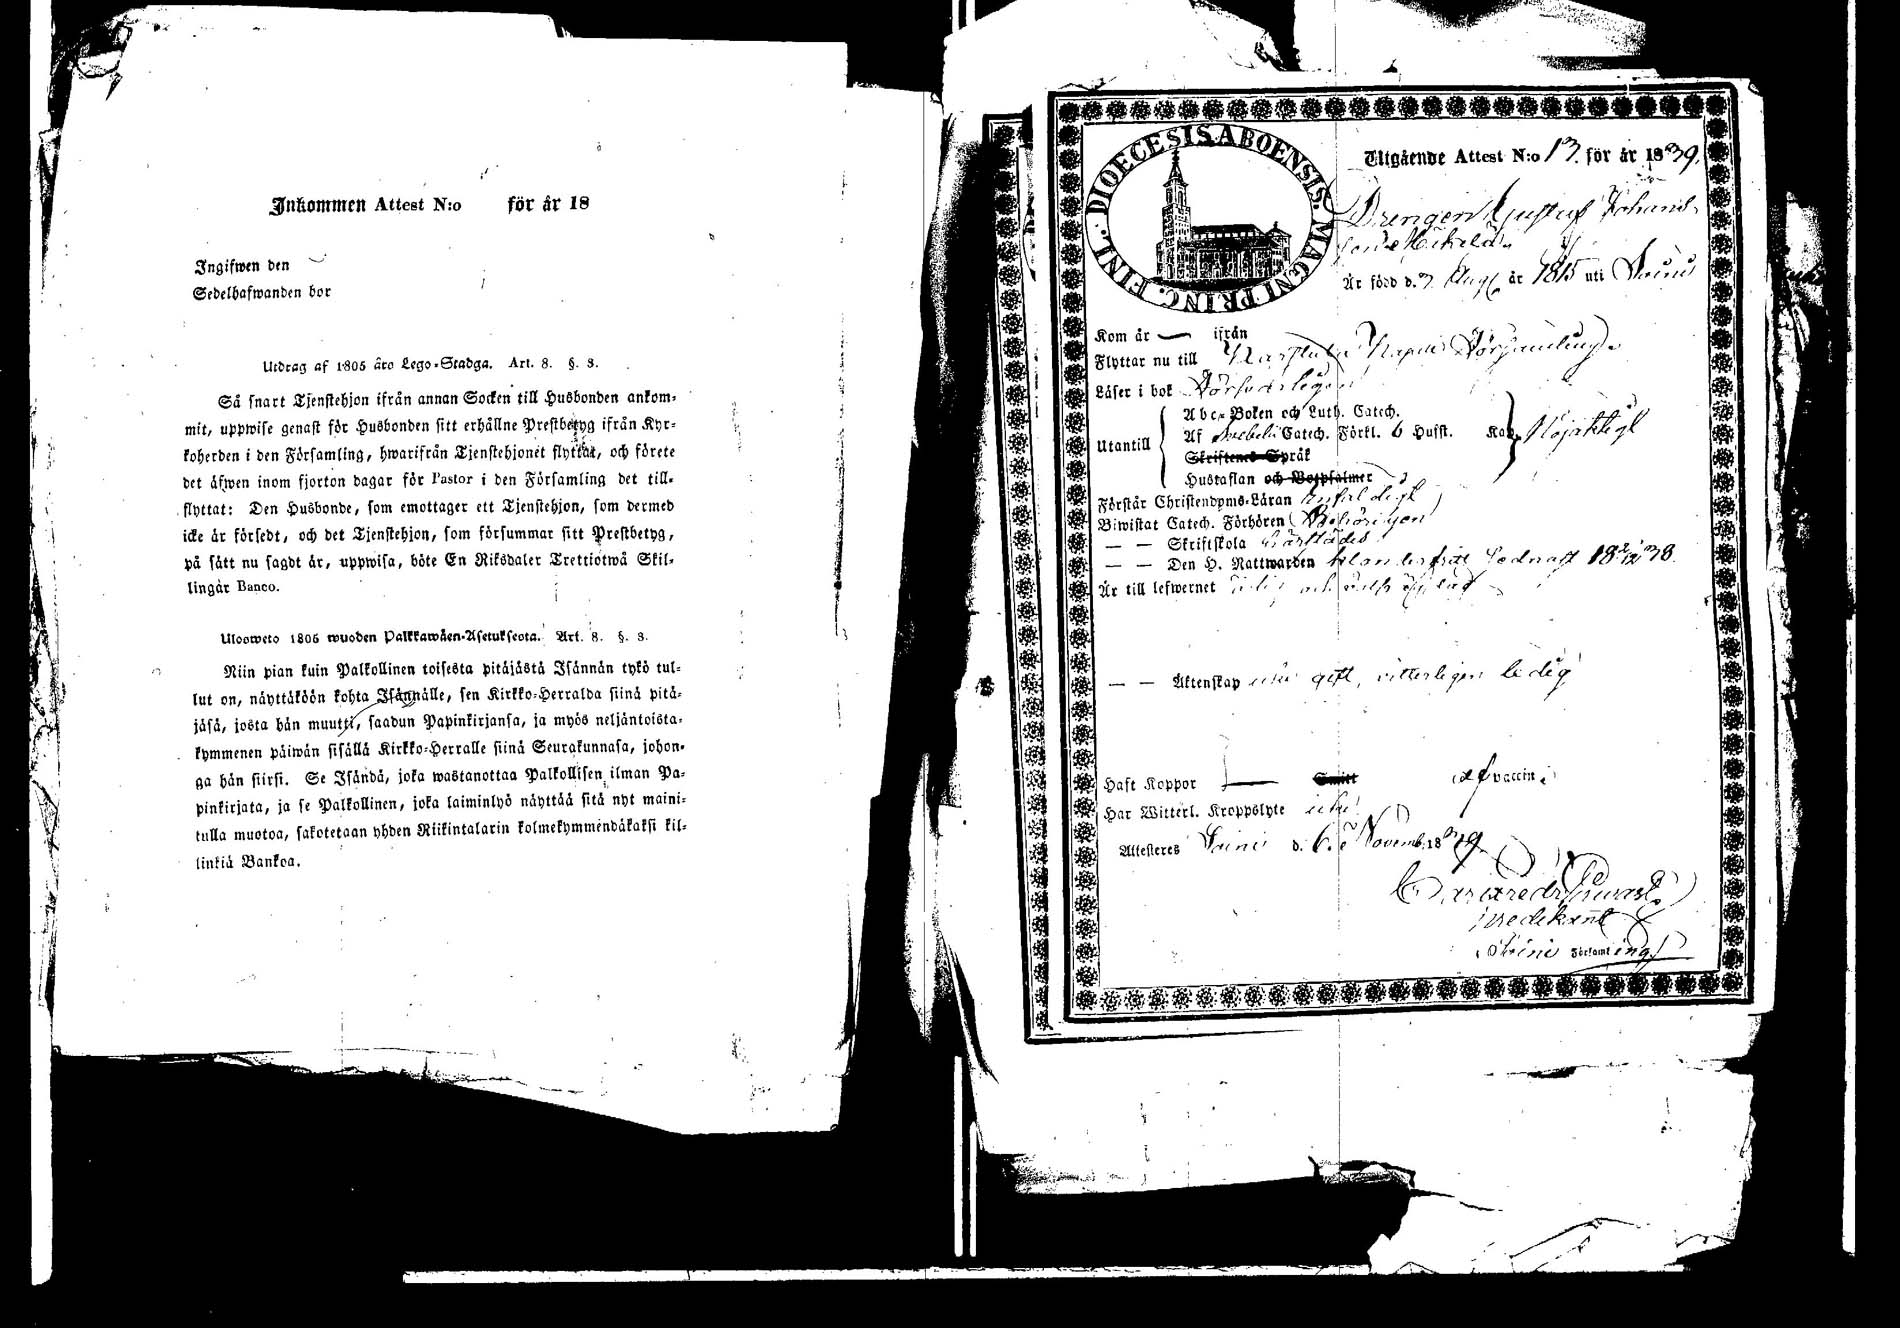 Inkommen Attest N:o för år 18
Ingifwen den
Sedelhafwanden bor
Utdrag af 1805 års Lego-Stadga. Art. 8. §. 3.
Så snart Tjenstehjon ifrån annan Socken till Husbonden ankom-
mit, uppwise genast för Husbonden sitt erhållne Prestbetyg ifrån Kyr-
koherden i den Församling, hwarifrån Tjenstehjonet flyttat, och förete
det äfwen inom fjorton dagar för Pastor i den Församling det till-
flyttat: Den Husbonde, som emottager ett Tjenstehjon, som dermed
icke är försedt, och det Tjenstehjon, som försummar sitt Prestbetyg,
på sätt nu sagdt är, uppwisa, böte En Riksdaler Trettiotwå Skil-
lingar Banco.
Ulosweto 1805 wuoden Palkkawäen-Asetuksesta. Art. 8. §. 3.
Niin pian kuin Palkollinen toisesta pitäjästä Isännän tykö tul-
lut on, näyttäköön kohta Isännälle, sen Kirkko-Herralda siinä pitä-
jäsä, josta hän muutti, saadun Papinkirjansa, ja myös neljäntoista-
kymmenen päiwän sisällä Kirkko-Herralle siinä Seurakunnasa, johon-
ga hän siirsi. Se Isändä, joka wastanottaa Palkollisen ilman Pa-
pinkirjata, ja se Palkollinen, joka laiminlyö näyttää sitä nyt maini-
tulla muotoa, sakotetaan yhden Riikintalarin kolmekymmendäkaksi kil-
linkiä Bankoa.
DIOECESIS ABOENSIS. MAGNI PRINC. FINL.
Utgående Attest N:o 13. för år 1839.
Drengen Gustaf Johans-
son
Är född d. 7 Aug är 1815 uti
Kom år — ifrån
Flyttar nu till Församling.
Läser i bok Försvarligen
Utantill Abc-Boken och Luth. Catech.
Af Svebelii Catech. Förkl. 6 Husst. Kap. Nöjaktigt
Skriftenes Språk
Hustaflan och Botpsalmer
Förstår Christendoms-Läran Enfaldigt
Biwistat Catech. Förhören Behörigen
— — Skriftskola
— — Den H. Nattwarden klanderfritt sednast 18 2/12 38.
Är till lefwernet och
— — Äktenskap icke gift, vitterligen ledig
Haft Koppor — Smitt af vaccin.
Har Witterl. Kroppslyte icke
Attesteras d. 6. November 1839
Predikant
Församling.